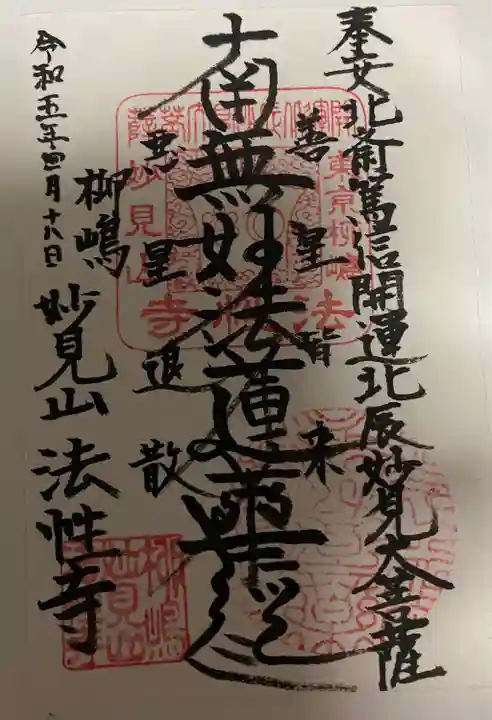 奉安北斎篤信開運北辰妙見大菩薩
善星皆来
南無妙法蓮華経
悪星退散
柳嶋 妙見山 法性寺
令和五年四月十八日
東京柳嶋
妙見山
法性寺
柳嶋
妙見山